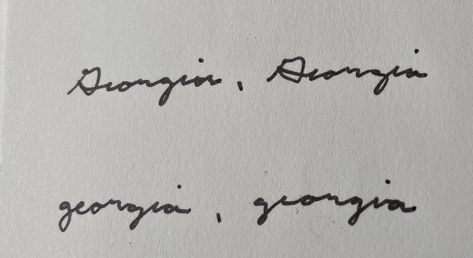 Georgia, Georgia
georgia, georgia